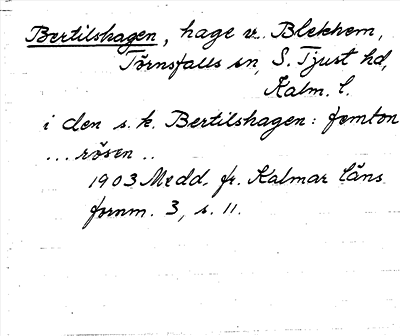 Bertilshagen, hage v. Blekhem,
Törnsfalls sn, S. Tjust hd,
Kalm. l.
i den s.k. Bertilshagen: femton
... rösen ..
1903 Medd. fr. Kalmar läns
fornm. 3, s. 11.